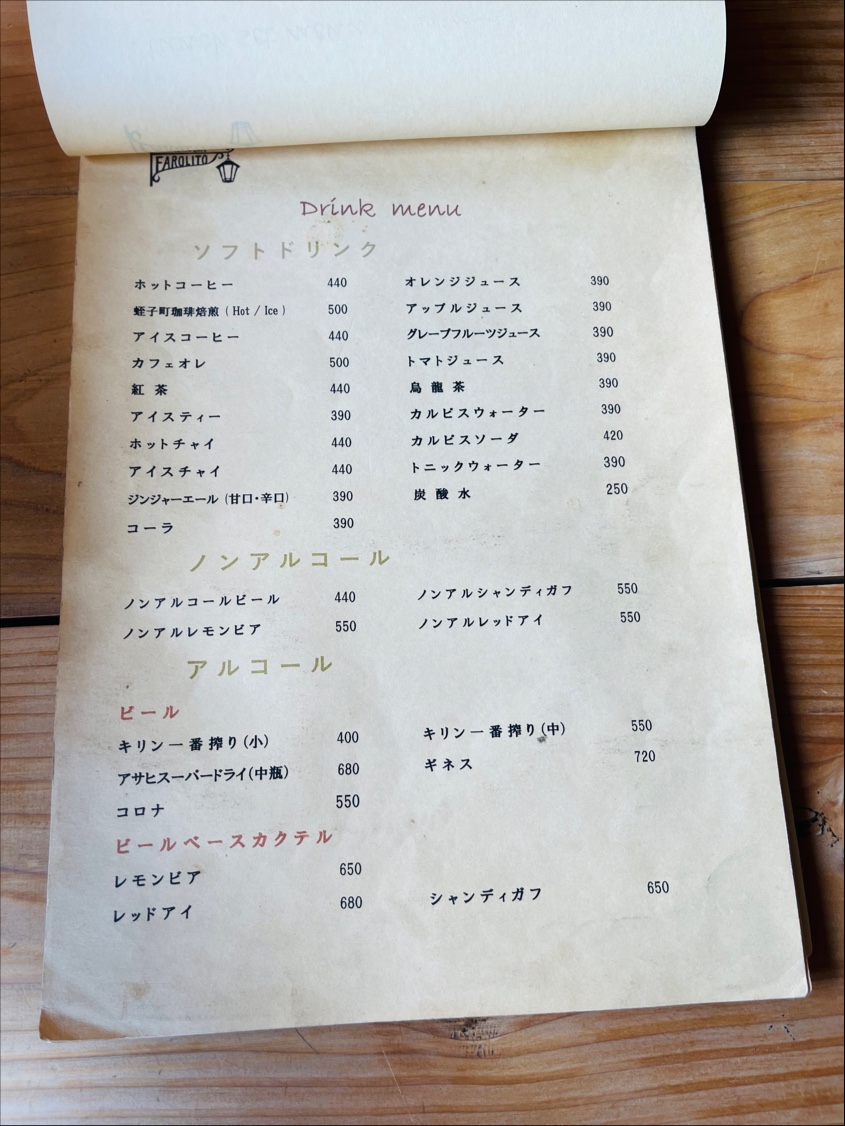 FAROLITO
Drink menu
ソフトドリンク
ホットコーヒー 440
蛭子町珈琲焙煎 (Hot / Ice) 500
アイスコーヒー 440
カフェオレ 500
紅茶 440
アイスティー 390
ホットチャイ 440
アイスチャイ 440
ジンジャーエール (甘口・辛口) 390
コーラ 390
オレンジジュース 390
アップルジュース 390
グレープフルーツジュース 390
トマトジュース 390
烏龍茶 390
カルピスウォーター 390
カルピスソーダ 420
トニックウォーター 390
炭酸水 250
ノンアルコール
ノンアルコールビール 440
ノンアルレモンビア 550
ノンアルシャンディガフ 550
ノンアルレッドアイ 550
アルコール
ビール
キリン一番搾り(小) 400
アサヒスーパードライ(中瓶) 680
コロナ 550
キリン一番搾り(中) 550
ギネス 720
ビールベースカクテル
レモンビア 650
レッドアイ 680
シャンディガフ 650